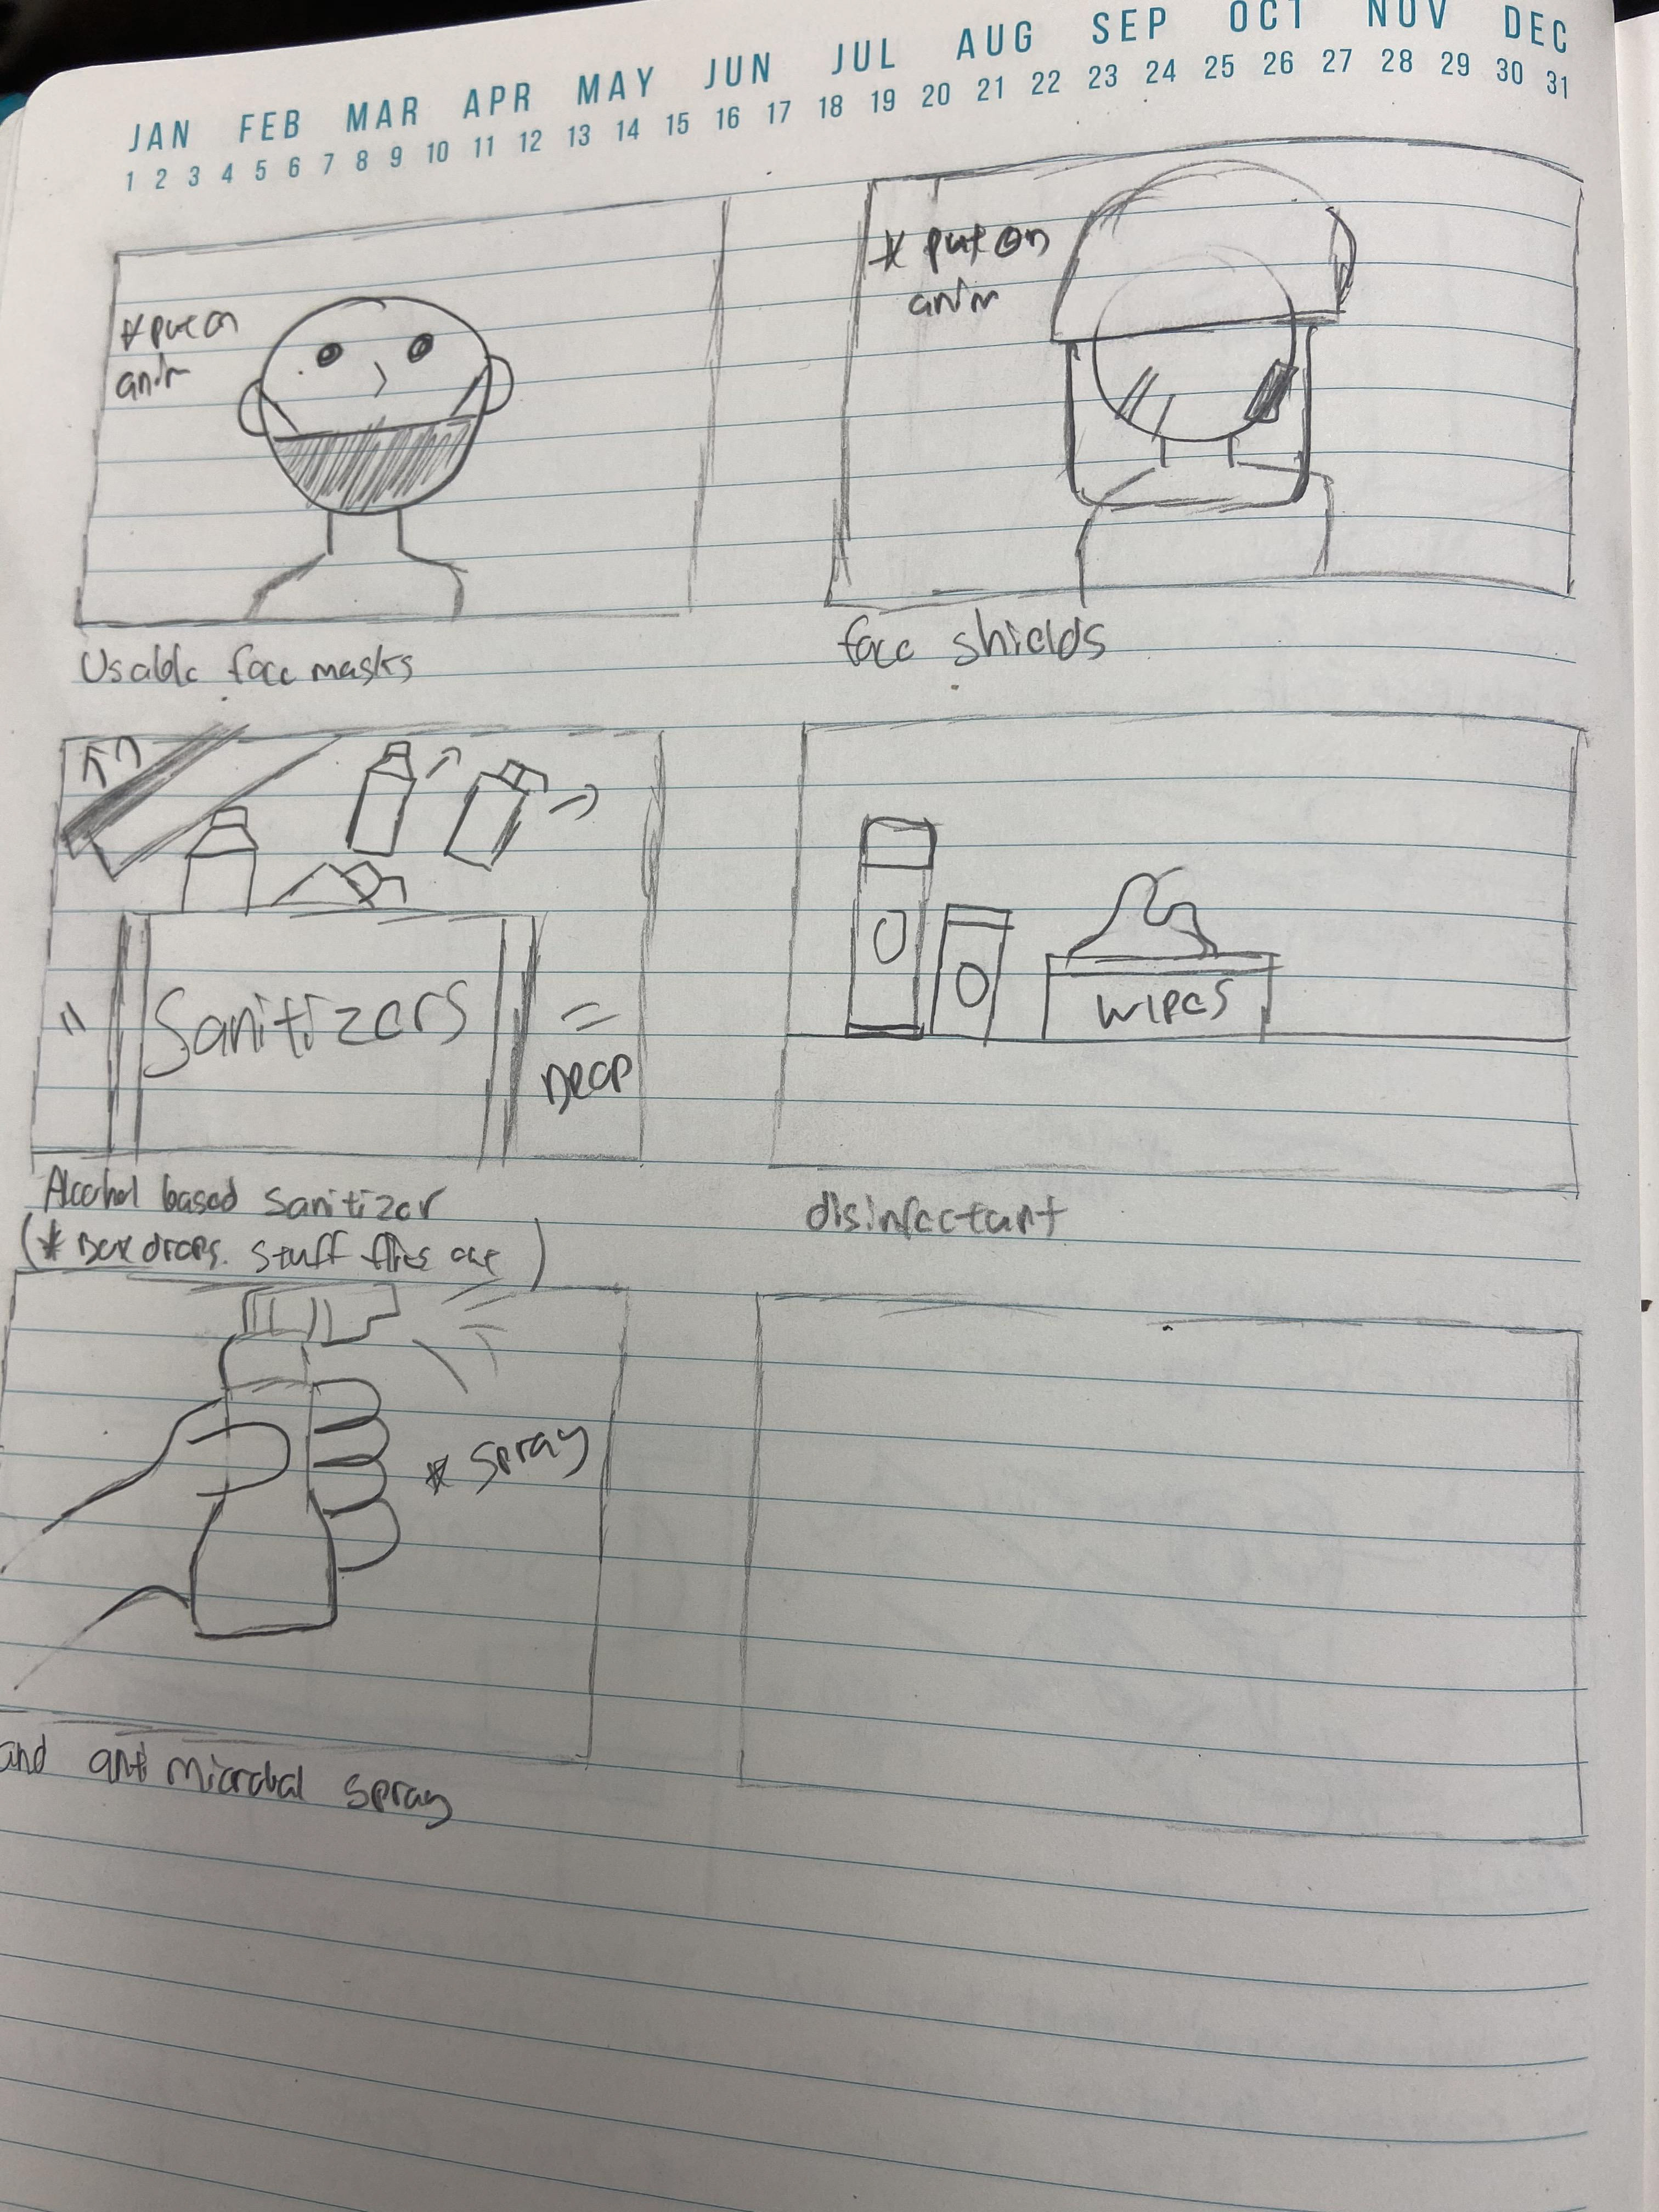 JAN FEB MAR APR MAY JUN JUL AUG SEP OCT NOV DEC
1 2 3 4 5 6 7 8 9 10 11 12 13 14 15 16 17 18 19 20 21 22 23 24 25 26 27 28 29 30 31
* put on
anim
Usable face masks
* put on
anim
face shields
Sanitizers
DROP
Alcohol based sanitizer
(* Box drops. Stuff flies out)
WIPES
disinfectant
* Spray
and anti microbal spray